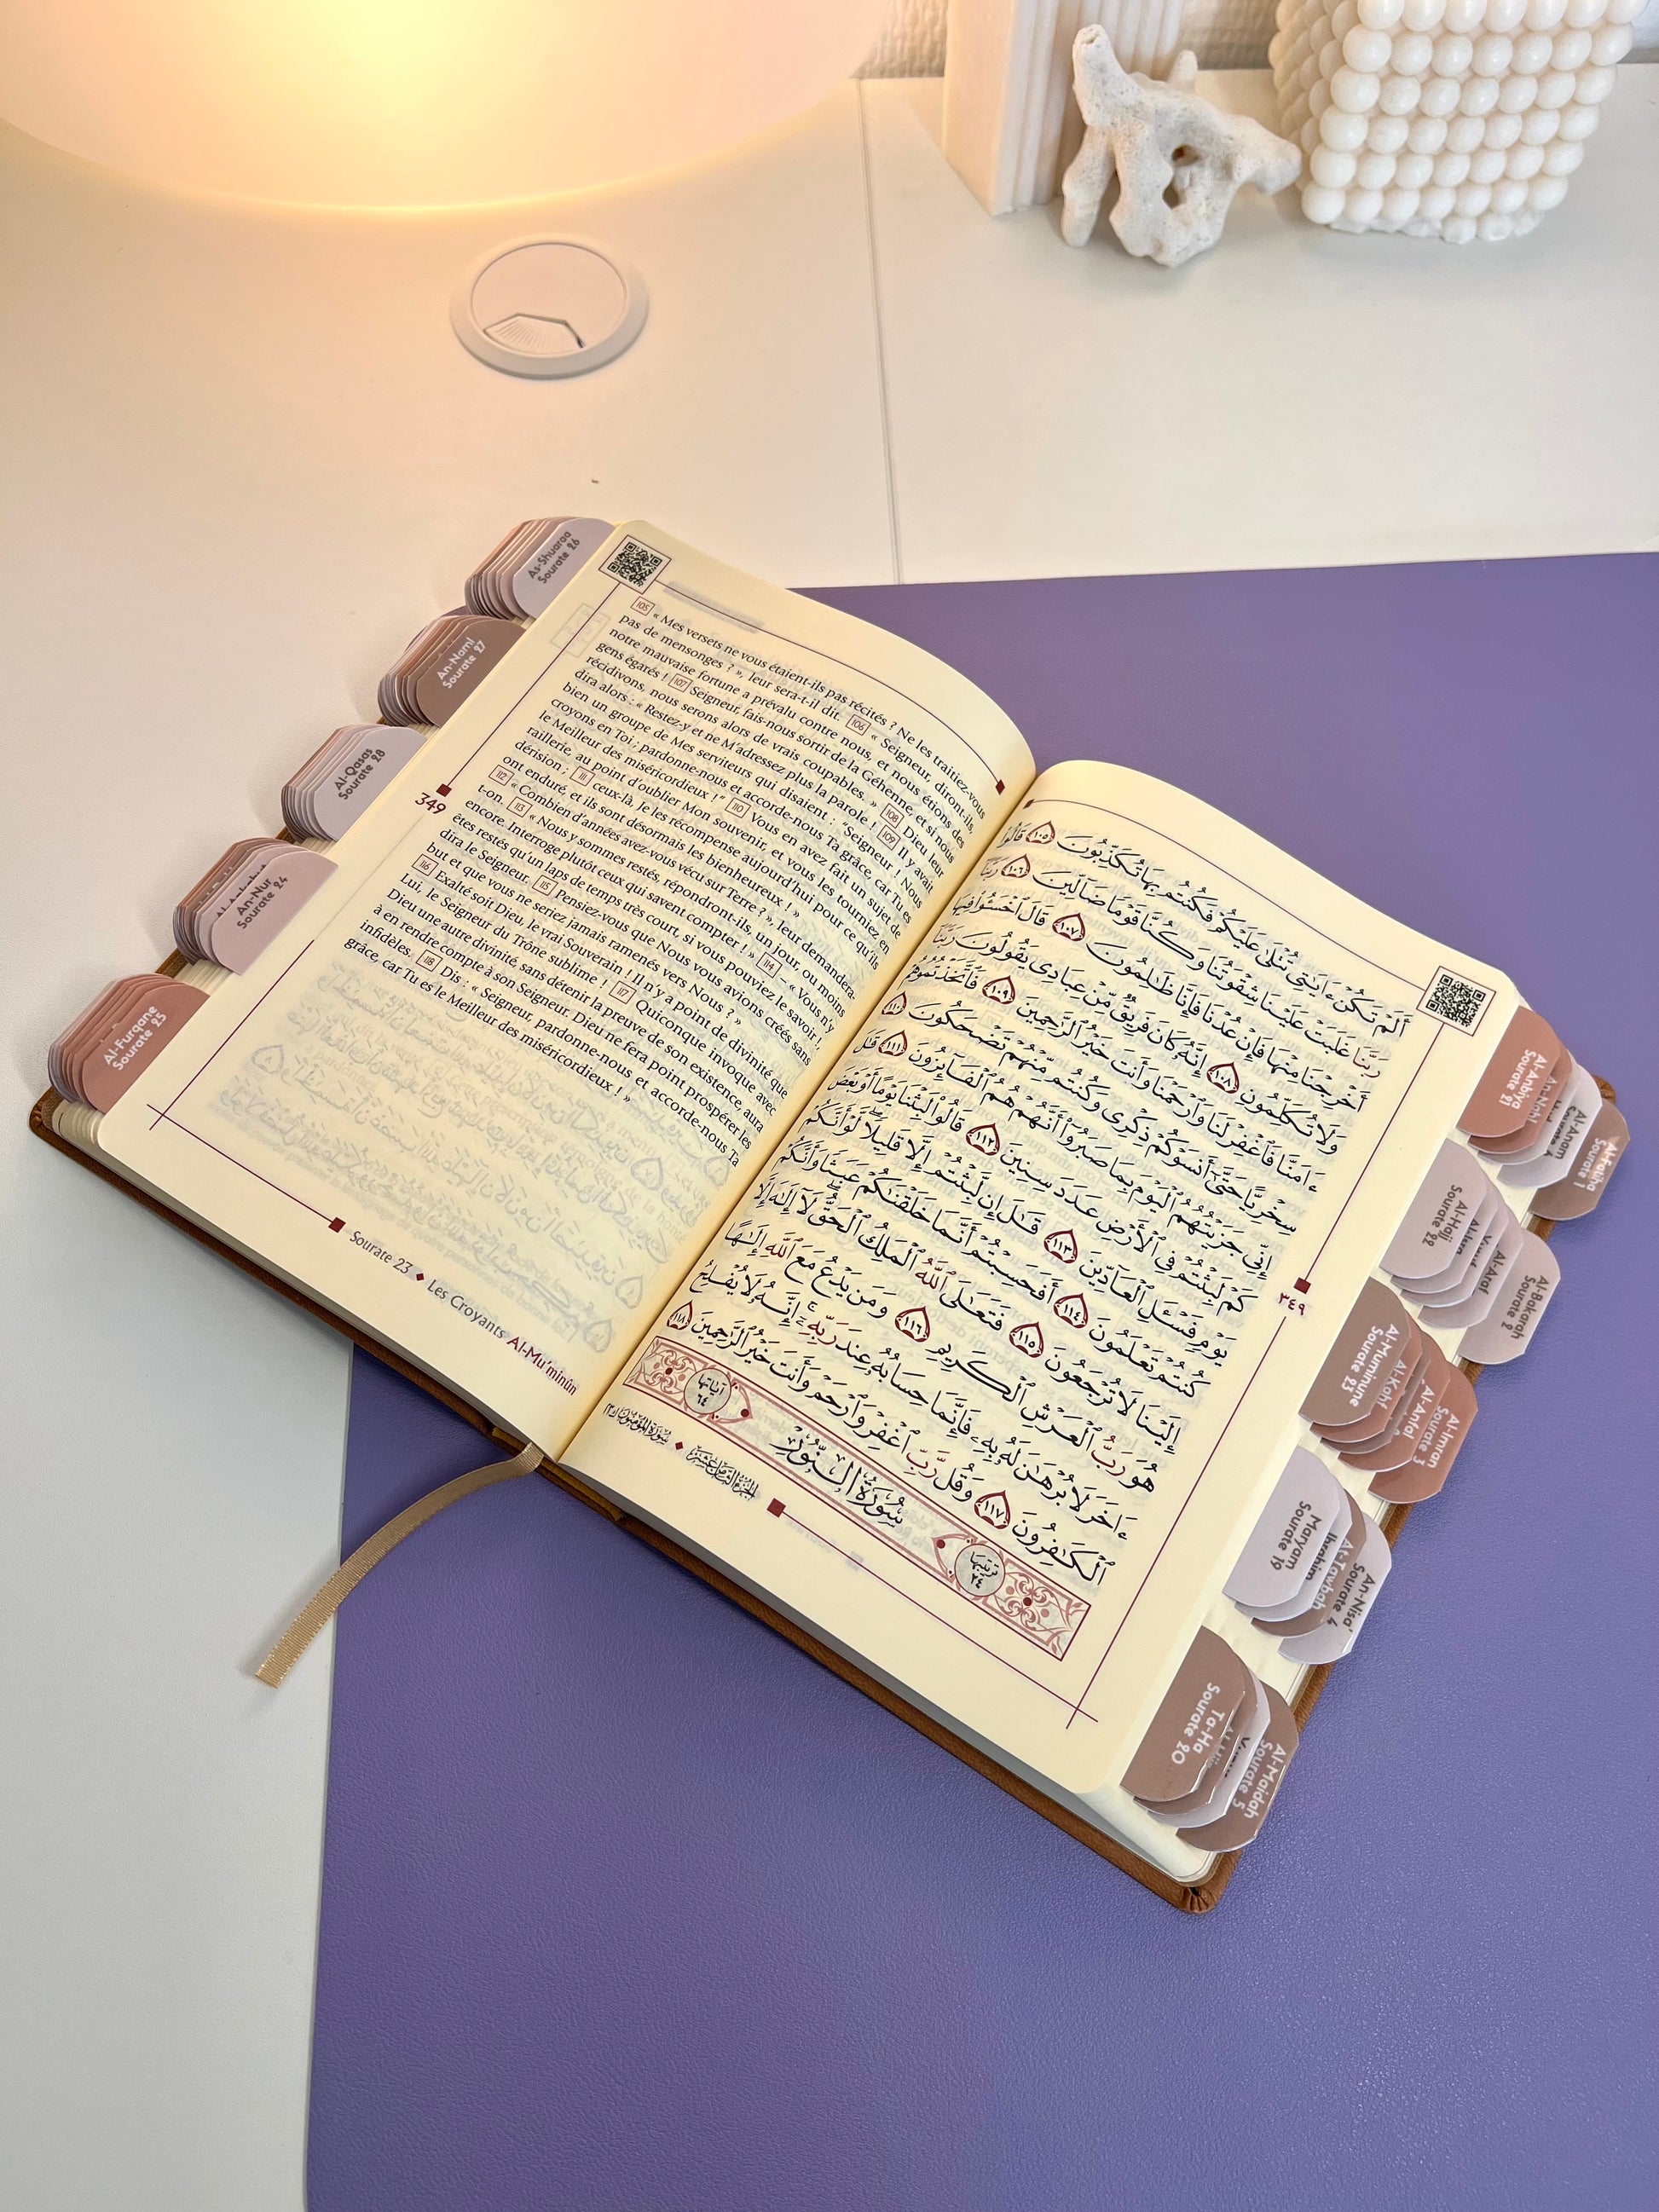 105 « Mes versets ne vous étaient-ils pas récités ? Ne les traitiez-vous
pas de mensonges ? », leur sera-t-il dit. 106 « Seigneur, diront-ils,
notre mauvaise fortune a prévalu contre nous, et nous étions des
gens égarés ! 107 Seigneur, fais-nous sortir de la Géhenne, et si nous
récidivons, nous serons alors de vrais coupables. » 108 Dieu leur
dira alors : « Restez-y et ne M'adressez plus la parole ! 109 Il y avait
bien un groupe de Mes serviteurs qui disaient : "Seigneur ! Nous
croyons en Toi ; pardonne-nous et accorde-nous Ta grâce, car Tu es
le Meilleur des miséricordieux !" 110 Vous en avez fait un sujet de
raillerie, au point d'oublier Mon souvenir, et vous les tourniez en
dérision ; 111 ceux-là, Je les récompense aujourd'hui pour ce qu'ils
ont enduré, et ils sont désormais les bienheureux ! »
112 « Combien d'années avez-vous vécu sur Terre ? », leur demandera-
t-on. 113 « Nous y sommes restés, répondront-ils, un jour, ou moins
encore. Interroge plutôt ceux qui savent compter ! » 114 « Vous n'y
êtes restés qu'un laps de temps très court, si vous pouviez le savoir !,
dira le Seigneur. 115 Pensiez-vous que Nous vous avions créés sans
but et que vous ne seriez jamais ramenés vers Nous ? »
116 Exalté soit Dieu, le vrai Souverain ! Il n'y a point de divinité que
Lui, le Seigneur du Trône sublime ! 117 Quiconque invoque avec
Dieu une autre divinité sans détenir la preuve de son existence, aura
à en rendre compte à son Seigneur. Dieu ne fera point prospérer les
infidèles. 118 Dis : « Seigneur, pardonne-nous et accorde-nous Ta
grâce, car Tu es le Meilleur des miséricordieux ! »
349
Sourate 23 ◆ Les Croyants Al-Mu'minûn
أَلَمْ تَكُنْ ءَايَـٰتِى تُتْلَىٰ عَلَيْكُمْ فَكُنتُم بِهَا تُكَذِّبُونَ ١٠٥ قَالُوا۟
رَبَّنَا غَلَبَتْ عَلَيْنَا شِقْوَتُنَا وَكُنَّا قَوْمًا ضَآلِّينَ ١٠٦ رَبَّنَآ
أَخْرِجْنَا مِنْهَا فَإِنْ عُدْنَا فَإِنَّا ظَـٰلِمُونَ ١٠٧ قَالَ ٱخْسَـُٔوا۟ فِيهَا
وَلَا تُكَلِّمُونِ ١٠٨ إِنَّهُۥ كَانَ فَرِيقٌ مِّنْ عِبَادِى يَقُولُونَ رَبَّنَآ
ءَامَنَّا فَٱغْفِرْ لَنَا وَٱرْحَمْنَا وَأَنتَ خَيْرُ ٱلرَّٰحِمِينَ ١٠٩ فَٱتَّخَذْتُمُوهُمْ
سِخْرِيًّا حَتَّىٰٓ أَنسَوْكُمْ ذِكْرِى وَكُنتُم مِّنْهُمْ تَضْحَكُونَ ١١٠
إِنِّى جَزَيْتُهُمُ ٱلْيَوْمَ بِمَا صَبَرُوٓا۟ أَنَّهُمْ هُمُ ٱلْفَآئِزُونَ ١١١ قَـٰلَ
كَمْ لَبِثْتُمْ فِى ٱلْأَرْضِ عَدَدَ سِنِينَ ١١٢ قَالُوا۟ لَبِثْنَا يَوْمًا أَوْ بَعْضَ
يَوْمٍ فَسْـَٔلِ ٱلْعَآدِّينَ ١١٣ قَـٰلَ إِن لَّبِثْتُمْ إِلَّا قَلِيلًا لَّوْ أَنَّكُمْ
كُنتُمْ تَعْلَمُونَ ١١٤ أَفَحَسِبْتُمْ أَنَّمَا خَلَقْنَـٰكُمْ عَبَثًا وَأَنَّكُمْ
إِلَيْنَا لَا تُرْجَعُونَ ١١٥ فَتَعَـٰلَى ٱللَّهُ ٱلْمَلِكُ ٱلْحَقُّ لَآ إِلَـٰهَ إِلَّا
هُوَ رَبُّ ٱلْعَرْشِ ٱلْكَرِيمِ ١١٦ وَمَن يَدْعُ مَعَ ٱللَّهِ إِلَـٰهًا
ءَاخَرَ لَا بُرْهَـٰنَ لَهُۥ بِهِۦ فَإِنَّمَا حِسَابُهُۥ عِندَ رَبِّهِۦٓ إِنَّهُۥ لَا يُفْلِحُ
ٱلْكَـٰفِرُونَ ١١٧ وَقُل رَّبِّ ٱغْفِرْ وَٱرْحَمْ وَأَنتَ خَيْرُ ٱلرَّٰحِمِينَ ١١٨
ترتيبها ٢٤ سُورَةُ ٱلنُّورِ آياتها ٦٤
٣٤٩
As-Shuaraa
Sourate 26
An-Naml
Sourate 27
Al-Qasas
Sourate 28
An-Nur
Sourate 24
Al-Furqane
Sourate 25
Al-Anbiya
Sourate 21
Al-Anam
Al-Fatiha
Sourate 1
Al-Hajj
Sourate 22
Al-Araf
Al-Bakarah
Sourate 2
Al-Muminune
Sourate 23
Al-Kahf
Al-Anfal
Al-Imran
Sourate 3
Maryam
Sourate 19
Ibrahim
At-Tawbah
An-Nisa'
Sourate 4
Ta-Ha
Sourate 20
Al-Maidah
Sourate 5